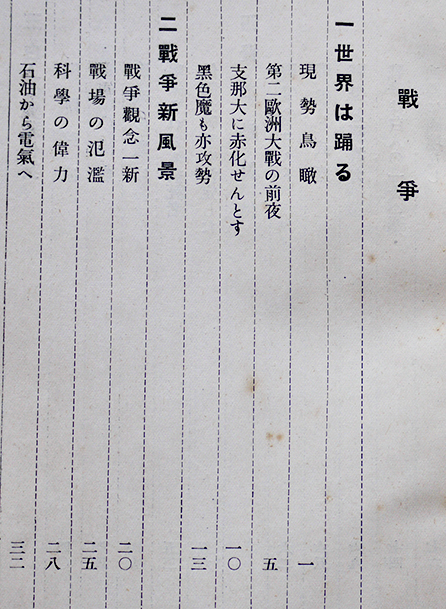 戰爭
一 世界は踊る
現勢鳥瞰 一
第二歐洲大戰の前夜 五
支那大に赤化せんとす 一〇
黑色魔も亦攻勢 一三
二 戰爭新風景
戰爭觀念一新 二〇
戰場の氾濫 二五
科學の偉力 二八
石油から電氣へ 三二